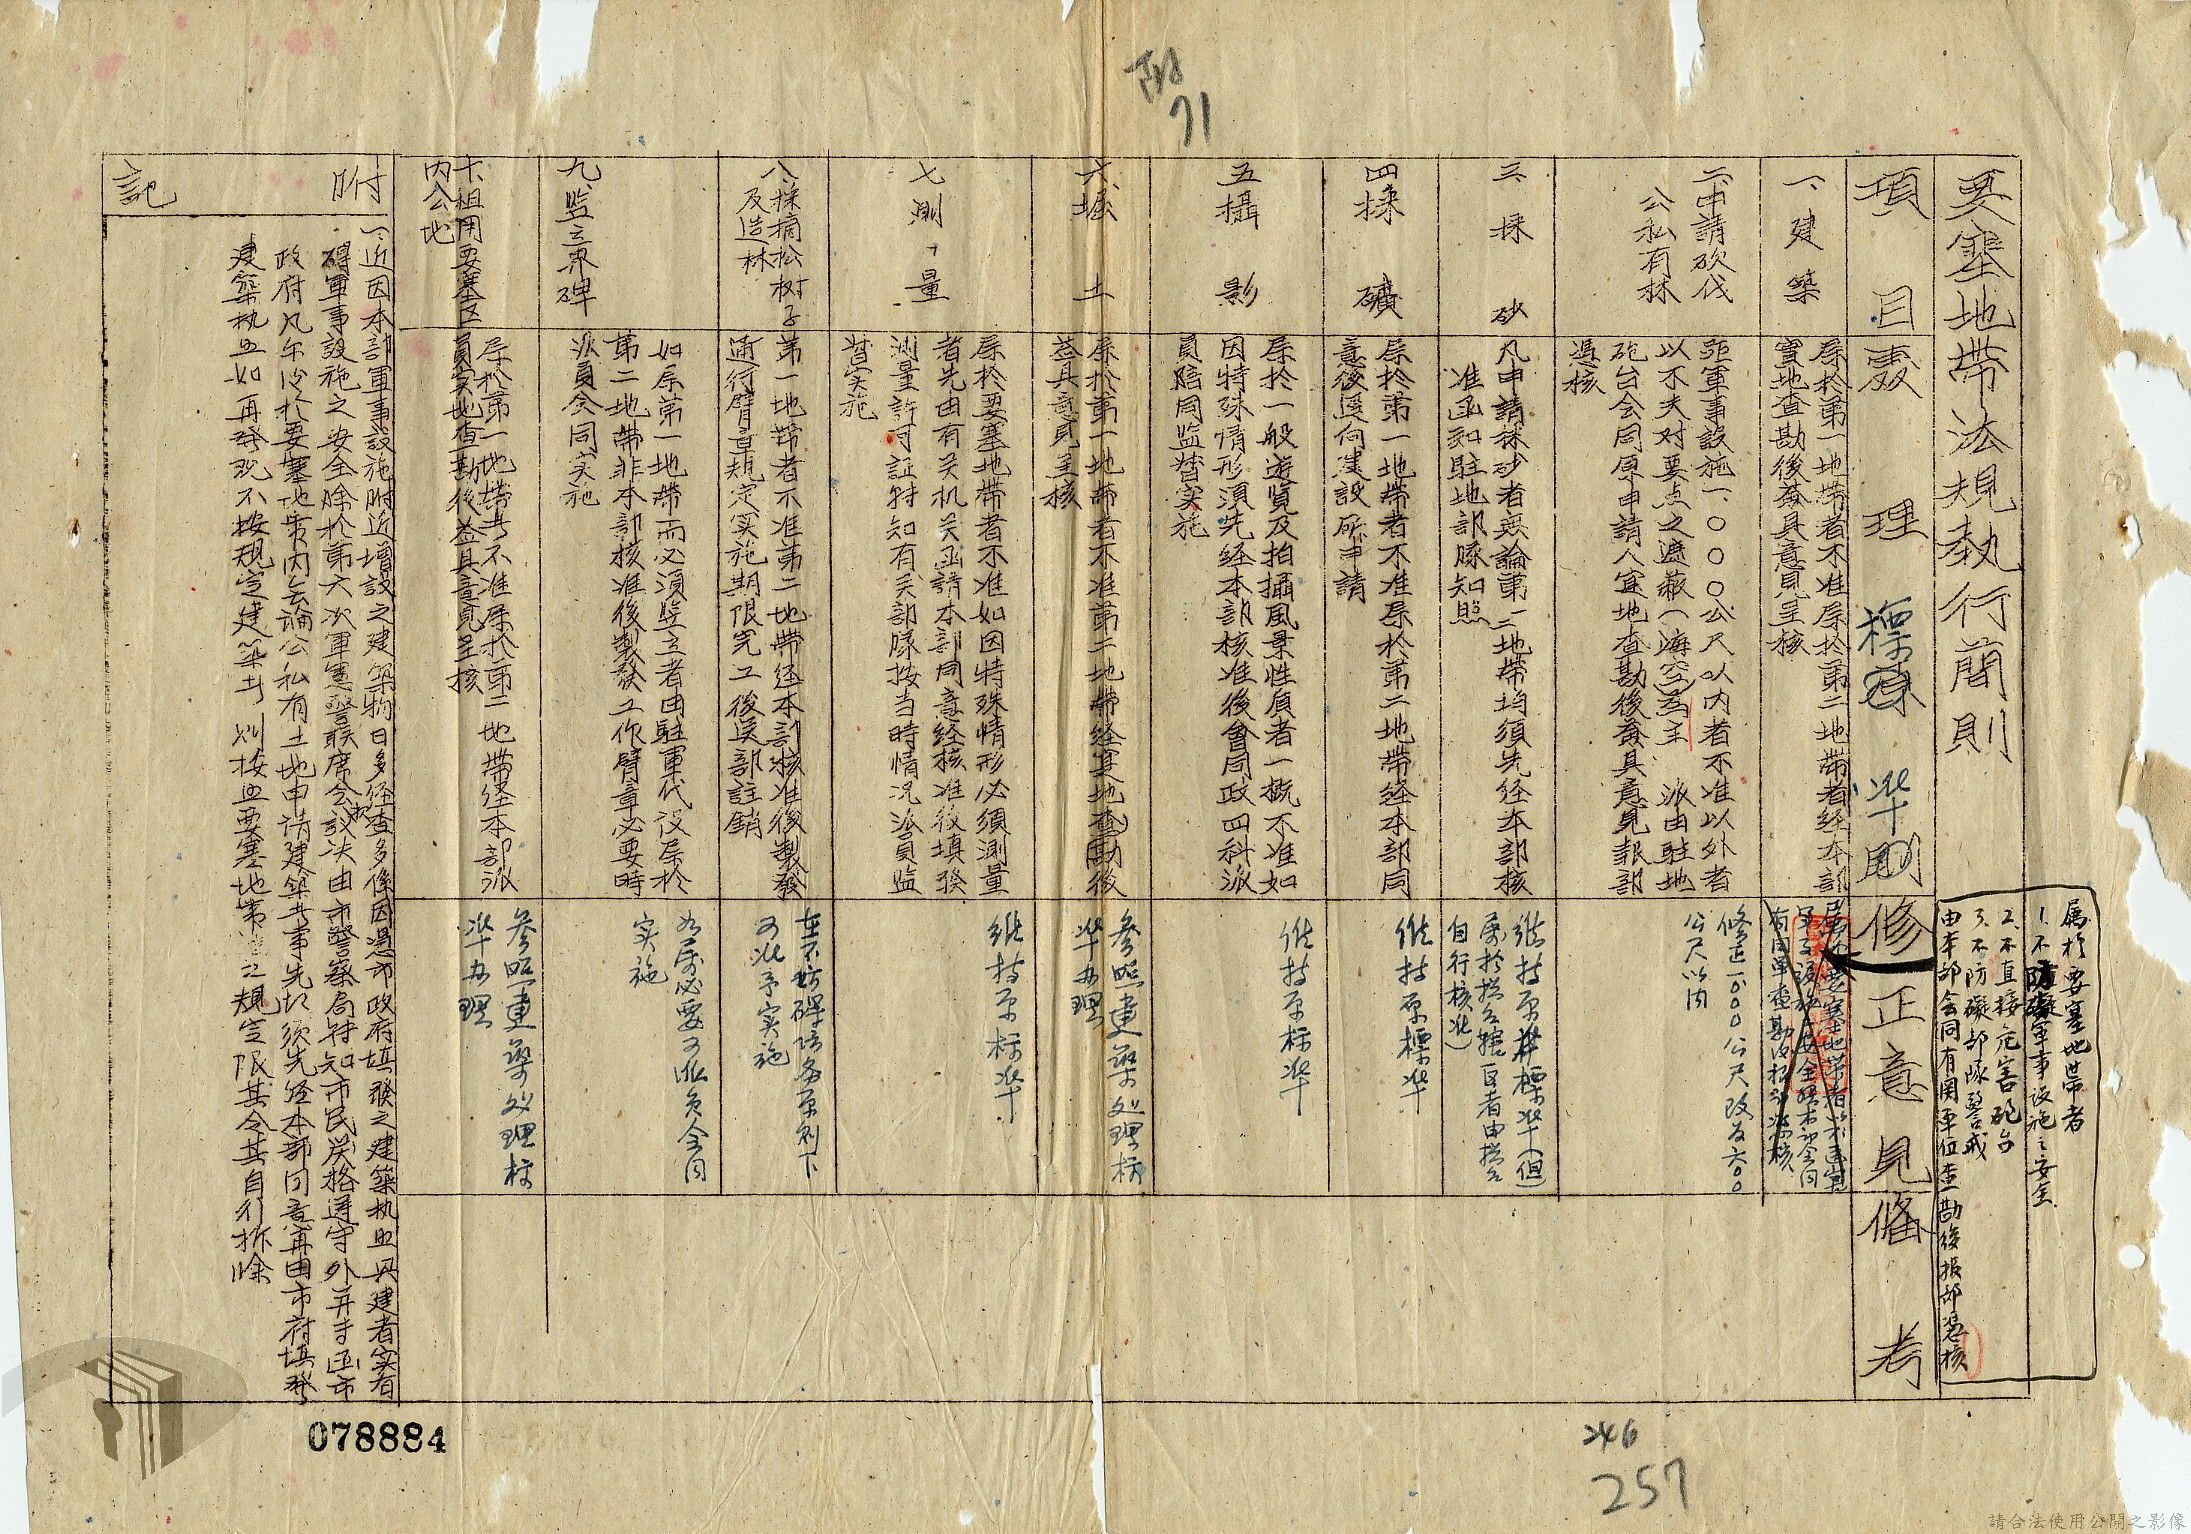 附
71
要塞地帶法規執行簡則
項目
處理標準
修正意見
備考
屬於要塞地帶者
1.不防礙軍事設施之安全
2.不直接危害砲台
3.不防礙部隊警戒
由本部會同有關單位查勘後报部憑核
一、建築
屬於第一地帶者不准屬於第二地帶者經本部
實地查勘後簽具意見呈核
二、申請砍伐
公私有林
距軍事設施一、〇〇〇公尺以內者不准以外者
以不失对要点之遮蔽(海空為主)派由駐地
砲台会同原申請人宜地查勘後簽具意見報部
憑核
修正1000公尺改为六〇〇
公尺以内
三、採砂
凡申請採砂者無論第一二地帶均須先经本部核
准函知駐地部隊知照
維持原標準(但
自行核准)
四採礦
屬於第一地帶者不准屬於第二地帶经本部同
意後逕向建設厛申請
維持原標準
五攝影
屬於一般遊覽及拍攝風景性質者一概不准如
因特殊情形須先经本部核准後會同政四科派
員賠同監督实施
維持原标準
六堀土
屬於第一地帶者不准第二地帶经宴地查勘後
簽具意見呈核
參照建築处理标
準办理
七測量
屬於要塞地帶者不准如因特殊情形必須測量
者先由有关机关函請本部同意经核准後填發
測量許可証轉知有关部隊按当時情况派員监
督实施
維持原标準
八、採摘松树子
及造林
第一地帶者不准第二地帶经本部核准後製發
通行臂章規定实施期限完工後送部註銷
在不妨碍防务原则下
可准予实施
九、监立界碑
如屬第一地帶而必須监立者由駐軍代设屬於
第二地帶非本部核准後製發工作臂章必要時
派員会同实施
如属必要可派员会同
实施
十、租用要塞区
內公地
屬於第一地帶者不准屬於第二地帶经本部派
員实地查勘後簽具意見呈核
參照建築处理标
準办理
附記
一、近因本部軍事設施附近增設之建築物日多经查多係因憑市政府填發之建築执照興建者实有
碍軍事設施之安全除於第六次軍憲警联席会議决由市警察局转知市民嚴格遵守外并于函市
政府凡尓后於要塞地帶內无論公私有土地申请建築者事先必须先经本部同意再由市府填發
建築执照如再發现不按規定建築者則按照要塞地帶法之規定限其令其自行拆除
078884
246
257
請合法使用公開之影像